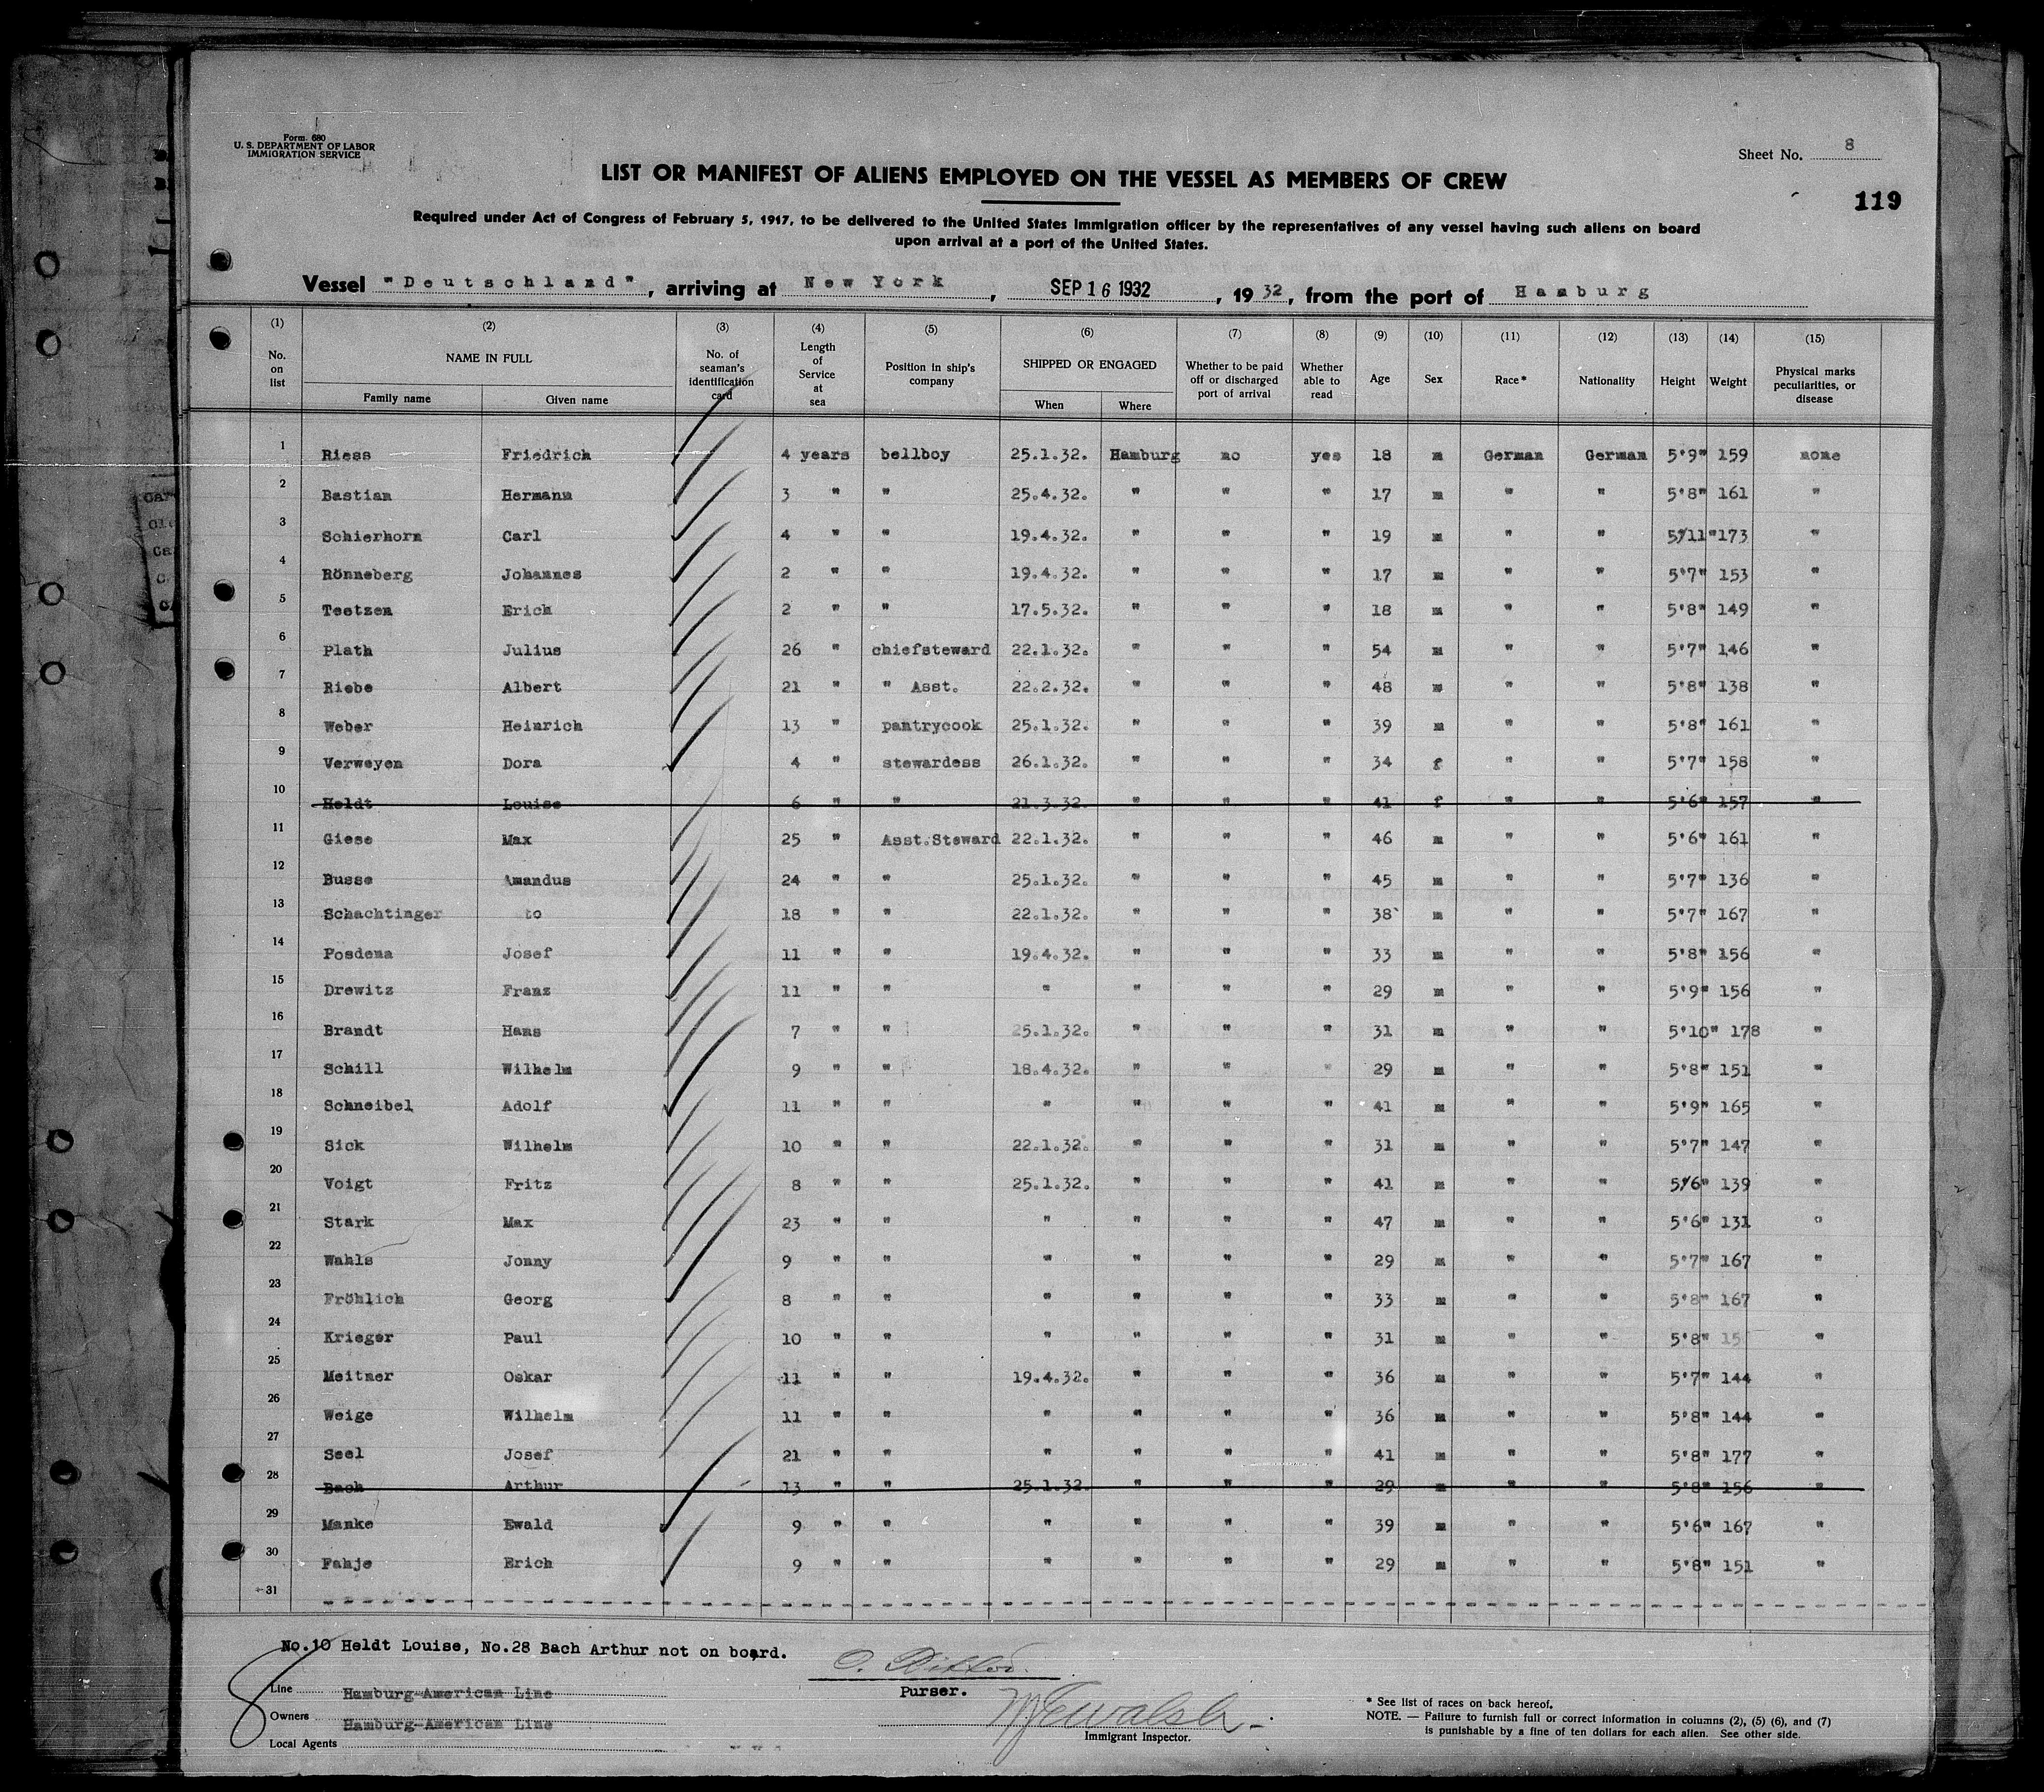 Form. 680
U. S. DEPARTMENT OF LABOR
IMMIGRATION SERVICE
Sheet No. 8
119
LIST OR MANIFEST OF ALIENS EMPLOYED ON THE VESSEL AS MEMBERS OF CREW
Required under Act of Congress of February 5, 1917, to be delivered to the United States Immigration officer by the representatives of any vessel having such aliens on board
upon arrival at a port of the United States.
Vessel "Deutschland", arriving at New York, SEP 16 1932, 1932, from the port of Hamburg
(1) (2) (3) (4) (5) (6) (7) (8) (9) (10) (11) (12) (13) (14) (15)
No. on list NAME IN FULL Family name Given name No. of seaman's identification card Length of Service at sea Position in ship's company SHIPPED OR ENGAGED When Where Whether to be paid off or discharged port of arrival Whether able to read Age Sex Race* Nationality Height Weight Physical marks peculiarities, or disease
1 Riess Friedrich 4 years bellboy 25.1.32. Hamburg no yes 18 m German German 5'9" 159 none
2 Bastian Hermann 3 " " 25.4.32. " " " 17 m " " 5'8" 161 "
3 Schierhorn Carl 4 " " 19.4.32. " " " 19 m " " 5'11" 173 "
4 Rönneberg Johannes 2 " " 19.4.32. " " " 17 m " " 5'7" 153 "
5 Teetzen Erich 2 " " 17.5.32. " " " 18 m " " 5'8" 149 "
6 Plath Julius 26 " chiefsteward 22.1.32. " " " 54 m " " 5'7" 146 "
7 Riebe Albert 21 " " Asst. 22.2.32. " " " 48 m " " 5'8" 138 "
8 Weber Heinrich 13 " pantrycook 25.1.32. " " " 39 m " " 5'8" 161 "
9 Verweyen Dora 4 " stewardess 26.1.32. " " " 34 f " " 5'7" 158 "
10 Heldt Louise 6 " " 21.3.32. " " " 41 f " " 5'6" 157 "
11 Giese Max 25 " Asst.Steward 22.1.32. " " " 46 m " " 5'6" 161 "
12 Busse Amandus 24 " " 25.1.32. " " " 45 m " " 5'7" 136 "
13 Schachtinger to 18 " " 22.1.32. " " " 38 m " " 5'7" 167 "
14 Posdena Josef 11 " " 19.4.32. " " " 33 m " " 5'8" 156 "
15 Drewitz Franz 11 " " " " " " 29 m " " 5'9" 156 "
16 Brandt Hans 7 " " 25.1.32. " " " 31 m " " 5'10" 178 "
17 Schill Wilhelm 9 " " 18.4.32. " " " 29 m " " 5'8" 151 "
18 Schneibel Adolf 11 " " " " " " 41 m " " 5'9" 165 "
19 Sick Wilhelm 10 " " 22.1.32. " " " 31 m " " 5'7" 147 "
20 Voigt Fritz 8 " " 25.1.32. " " " 41 m " " 5'6" 139 "
21 Stark Max 23 " " " " " " 47 m " " 5'6" 131 "
22 Wahls Jonny 9 " " " " " " 29 m " " 5'7" 167 "
23 Fröhlich Georg 8 " " " " " " 33 m " " 5'8" 167 "
24 Krieger Paul 10 " " " " " " 31 m " " 5'8" 15 "
25 Meitner Oskar 11 " " 19.4.32. " " " 36 m " " 5'7" 144 "
26 Weige Wilhelm 11 " " " " " " 36 m " " 5'8" 144 "
27 Seel Josef 21 " " " " " " 41 m " " 5'8" 177 "
28 Bach Arthur 13 " " 25.1.32. " " " 29 m " " 5'8" 156 "
29 Manke Ewald 9 " " " " " " 39 m " " 5'6" 167 "
30 Fahje Erich 9 " " " " " " 29 m " " 5'8" 151 "
31
No.10 Heldt Louise, No.28 Bach Arthur not on board.
Purser.
8
Line Hamburg-American Line
Owners Hamburg-American Line
Local Agents
Walsh
Immigrant Inspector.
* See list of races on back hereof.
NOTE. — Failure to furnish full or correct information in columns (2), (5) (6), and (7)
is punishable by a fine of ten dollars for each alien. See other side.